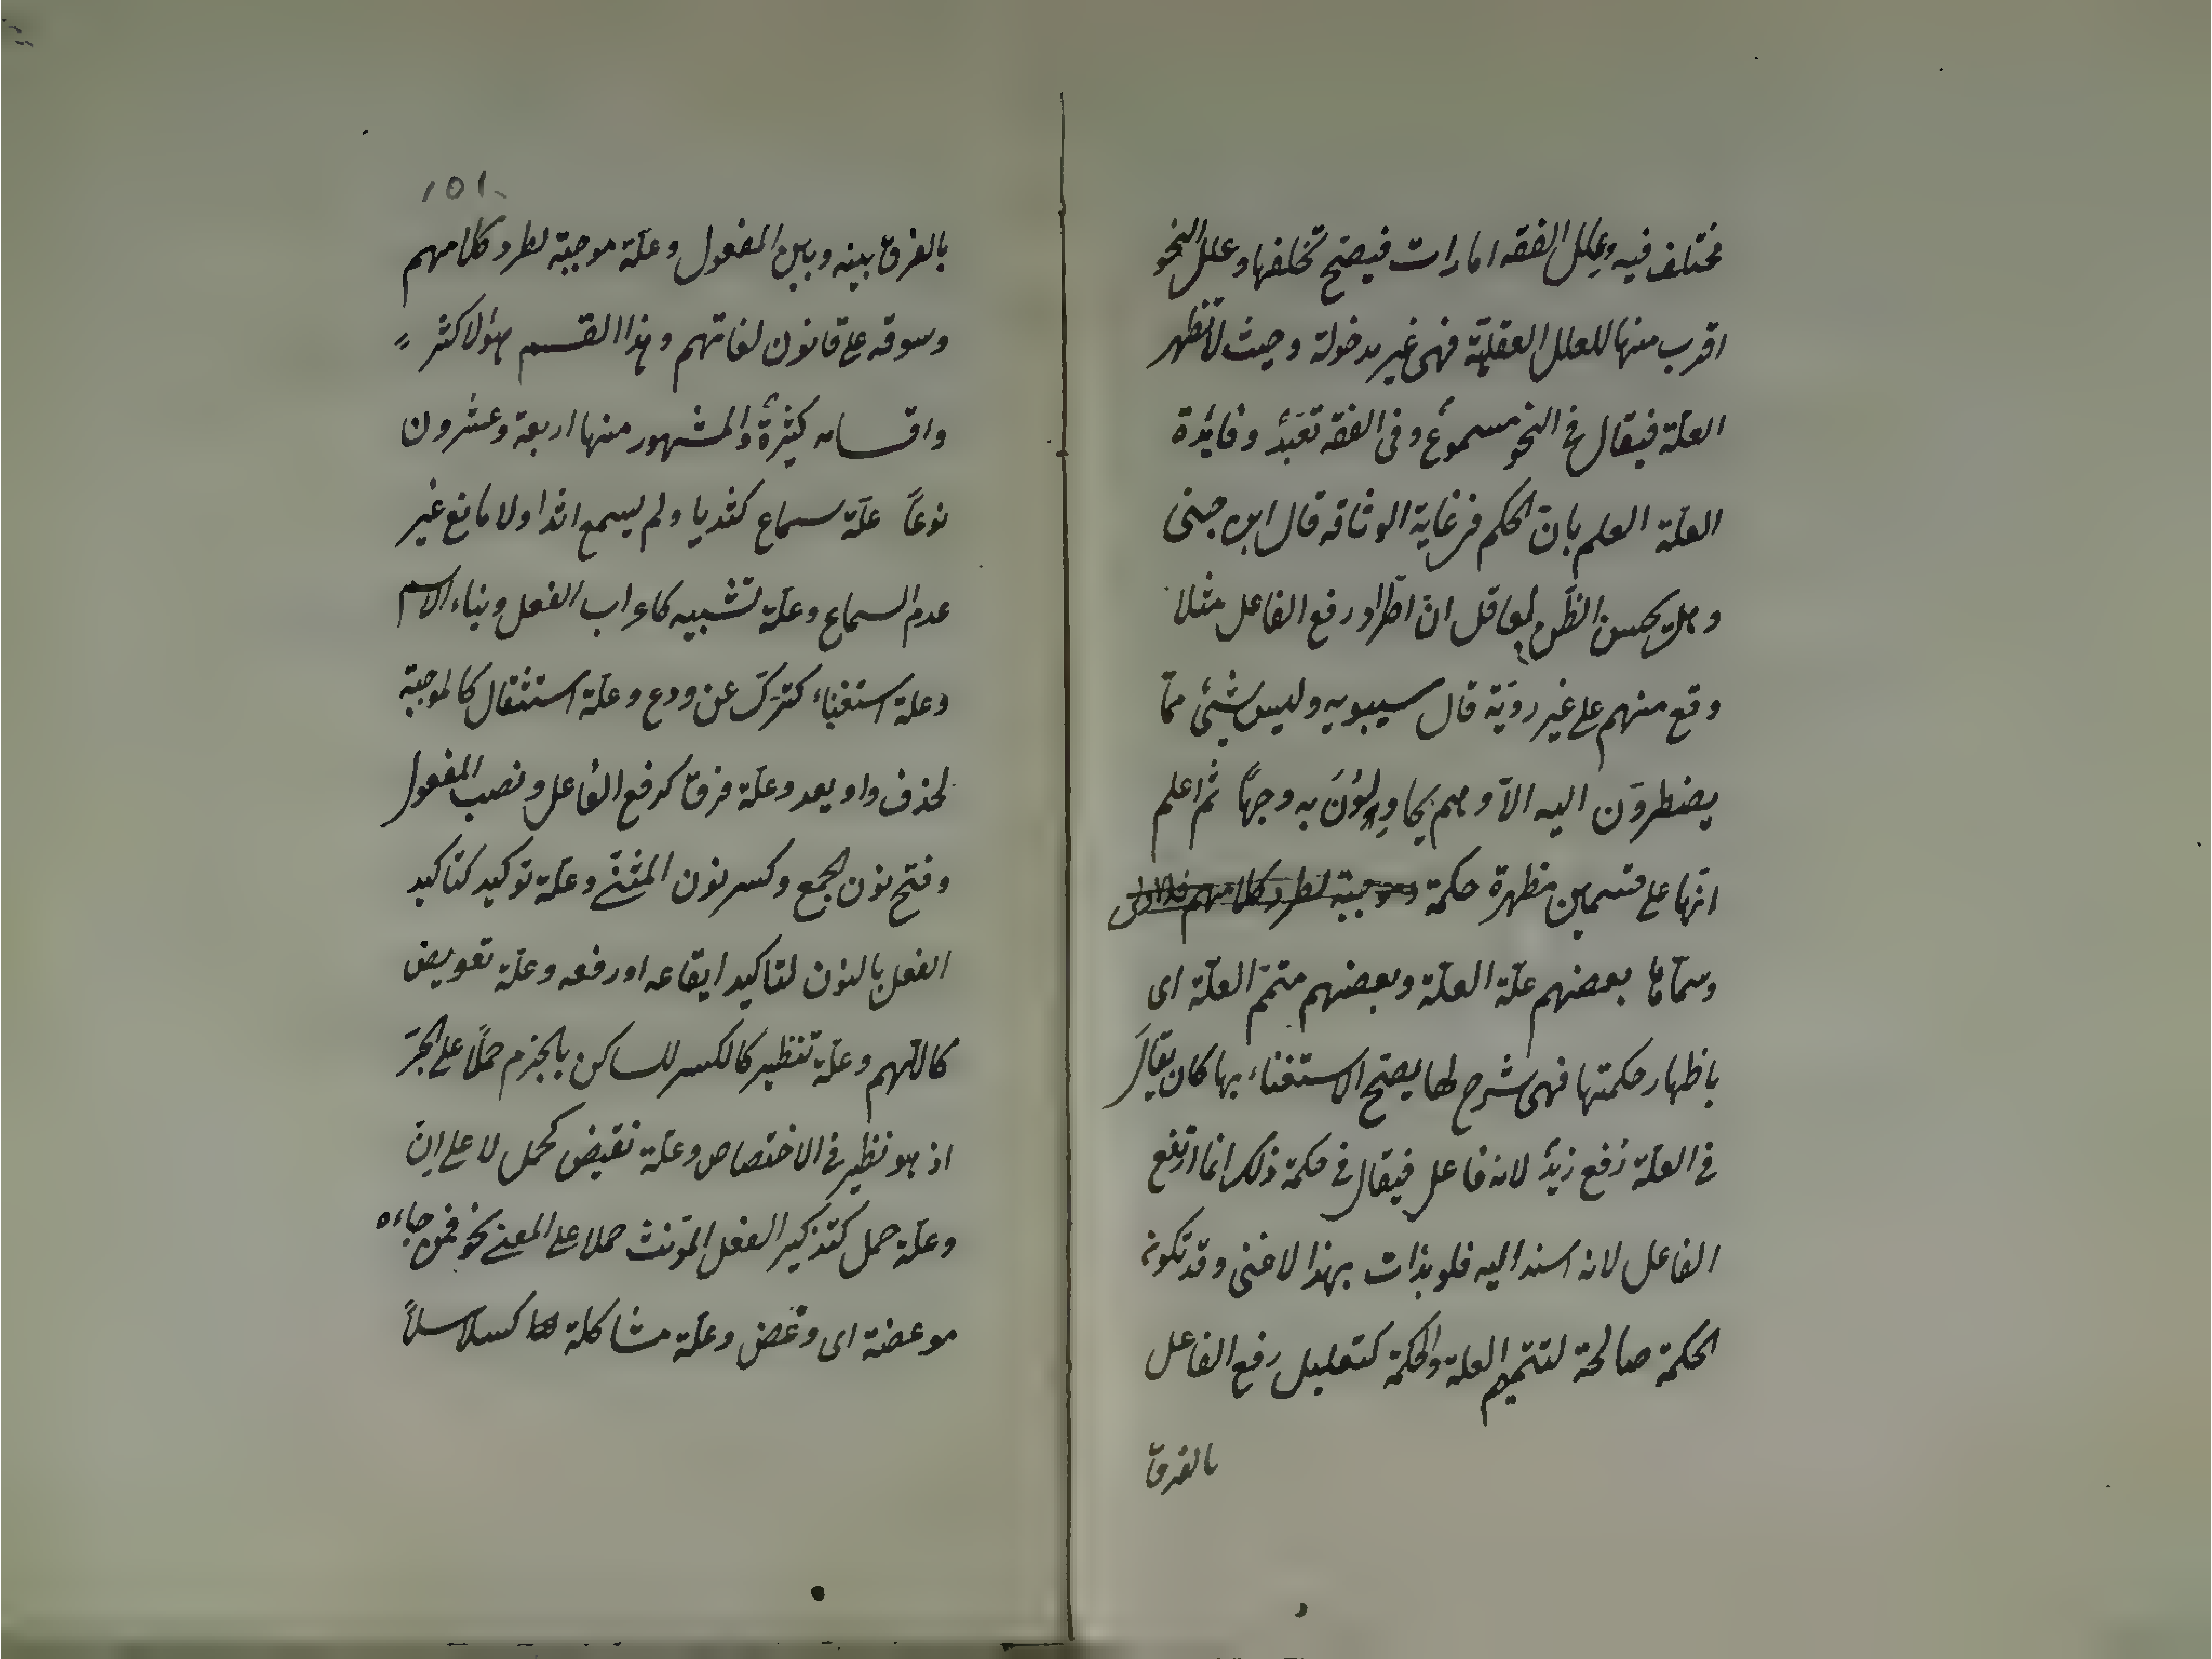 مختلف فيه وعلل الفقه امارات فيصح تخلفها وعلل النحو
اقرب منها للعلل العقلية فهى غير مدخولة وحيث لا تظهر
العلة فيقال فى النحو مسموع وفى الفقه تعبد وفايدة
العلة العلم بان الحكم فى غاية الوثاقه قال ابن جنى
وهل يحسن الظن لعاقل ان اطراد رفع الفاعل مثلا
وقع منهم على غير روية قال سيبويه وليس شيئ مما
يضطرون اليه الا وهم يحاولون به وجهاً ثم اعلم
انها على قسمين مظهرة حكمة وموجبة لطرد كلامهم فالاولى
وسماها بعضهم علة العلة وبعضهم متمم العلة اى
باظهار حكمتها فهى شرح لها يصح الاستغناء بها كان يقال
فى العلة رُفع زيدٌ لانه فاعل فيقال فى حكمة ذلك انما ارتفع
الفاعل لانه اسند اليه فلو بذات بهذا لاغنى وقد تكون
الحكمة صالحة لتتميم العلة والحكمة كتعليل رفع الفاعل
بالفرق
١٥١
بالفرق بينه وبين المفعول وعلة موجبة لطرد كلامهم
وسوقه على قانون لغاتهم وهذا القسم هو الاكثر
واقسامه كثيرةٌ والمشهور منها اربعة وعشرون
نوعاً علة سماع كثديا ولم يسمع اثدا ولا مانع غير
عدم السماع وعلة تشبيه كاعراب الفعل وبناء الاسم
وعلة استغناء كترك عن ودع وعلة استثقال كالموجبة
لحذف واو يعد وعلة فرق كرفع الفاعل ونصب المفعول
وفتح نون الجمع وكسر نون المثنى وعلة توكيد كتاكيد
الفعل بالنون لتاكيد ايقاعه او رفعه وعلة تعويض
كاللهم وعلة تنظير كالكسر للساكن بالجزم حملاً على الجر
اذ هو نظير فى الاختصاص وعلة نقيض كحمل لا على ان
وعلة حمل كتذكير الفعل المونث حملا على المعنى نحو فمن جاءه
موعضة اى وعض وعلة مشاكلة كسلاسلاً